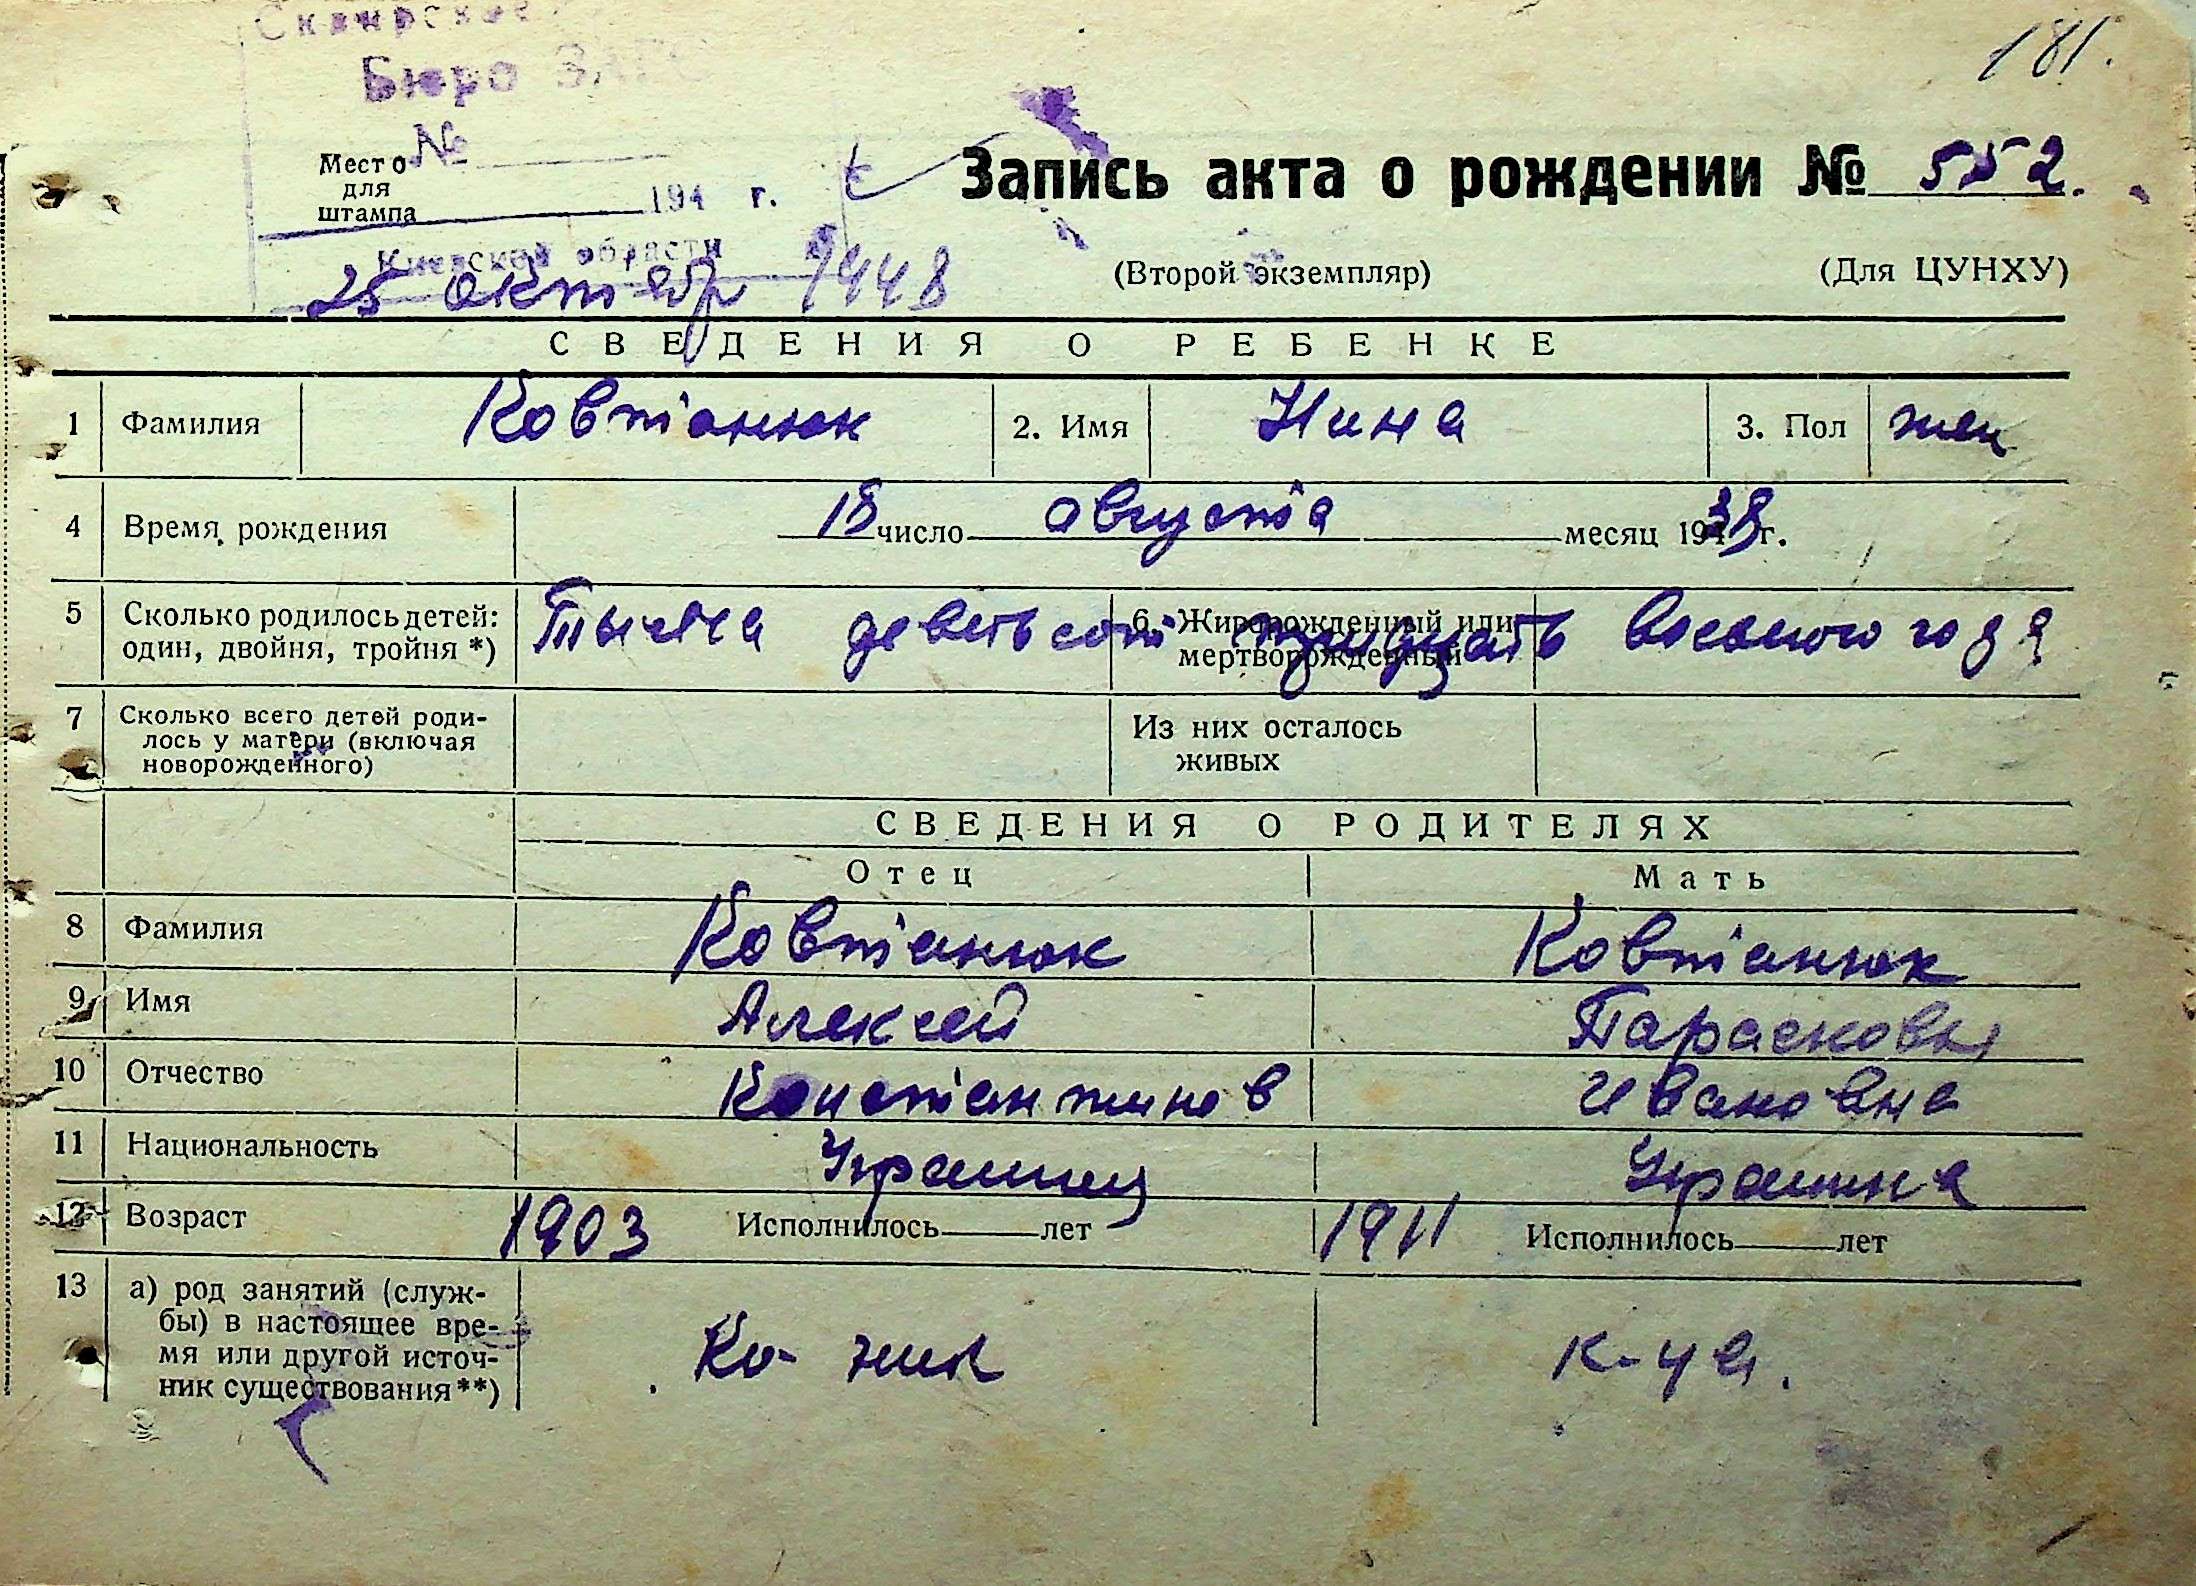 Сквирское
Бюро ЗАГС
181.
№
Место для штампа
194 г.
Запись акта о рождении № 552.
Киевской области
25 октябр 1948
(Второй экземпляр) (Для ЦУНХУ)
СВЕДЕНИЯ О РЕБЕНКЕ
1 Фамилия Ковтанюк 2. Имя Нина 3. Пол жен
4 Время рождения 18 число августа месяц 1938 г.
5 Сколько родилось детей: 6. Живорожденный или
один, двойня, тройня *) мертворожденный
Тысяча девятьсот тридцать восьмого года
7 Сколько всего детей роди- Из них осталось
лось у матери (включая живых
новорожденного)
СВЕДЕНИЯ О РОДИТЕЛЯХ
Отец Мать
8 Фамилия Ковтанюк Ковтанюк
9 Имя Алексей Парасковья
10 Отчество Константинов Ивановна
11 Национальность Украинец Украинка
12 Возраст 1903 Исполнилось лет 1911 Исполнилось лет
13 а) род занятий (служ-
бы) в настоящее вре-
мя или другой источ- Ко-ник к-ца.
ник существования **)